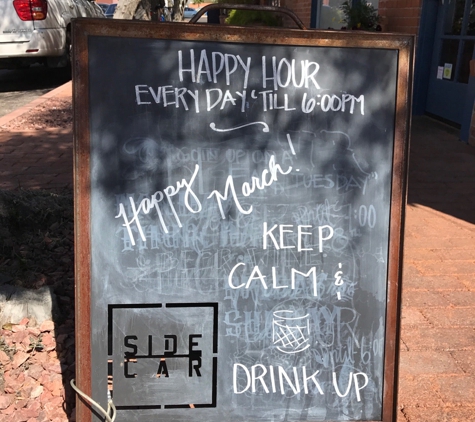 HAPPY HOUR
EVERY DAY 'TILL 6:00PM
Happy March!
KEEP
CALM &
DRINK UP
SIDE
CAR